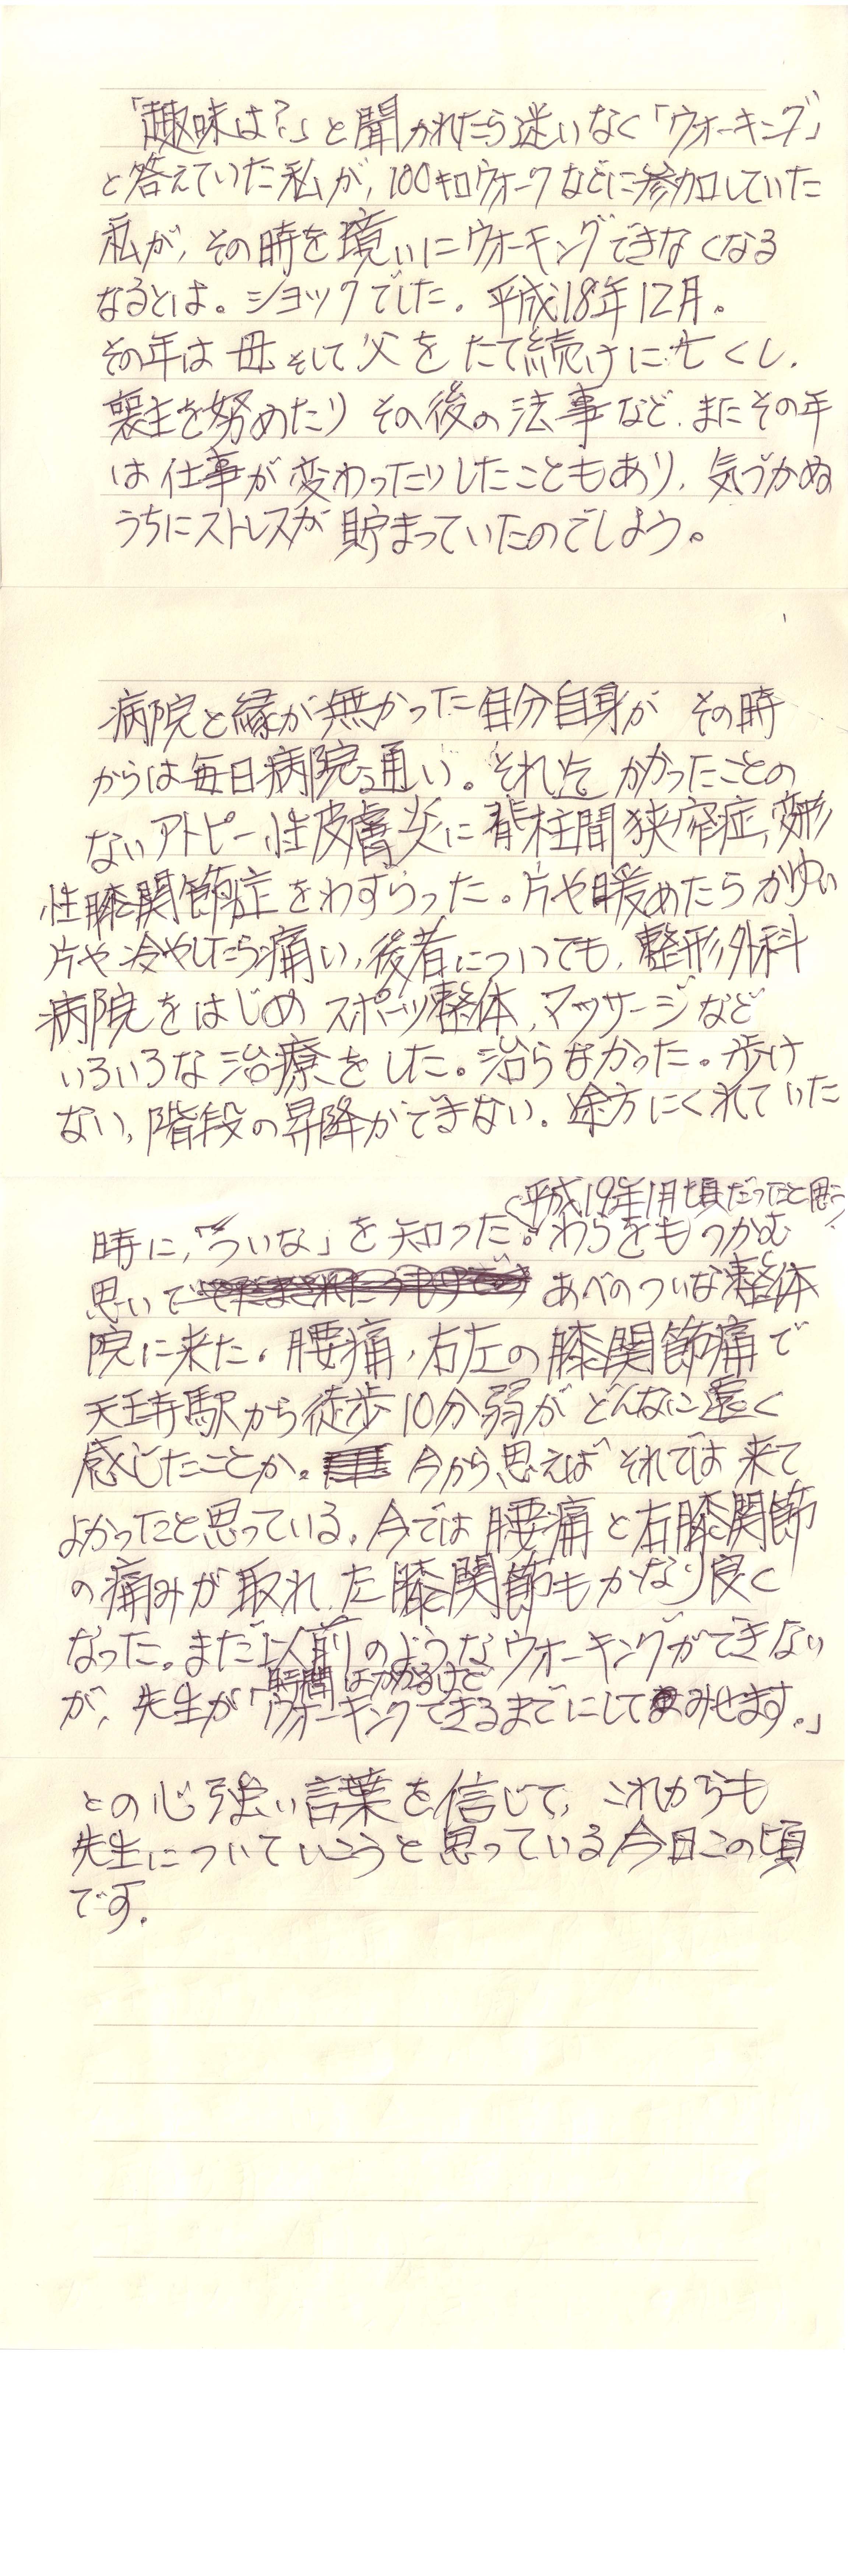 「趣味は?」と聞かれたら迷いなく「ウォーキング」
と答えていた私が、100キロウォークなどに参加していた
私が、その時を境いにウォーキングできなくなる
なるとは。ショックでした。平成18年12月。
その年は母そして父をたて続けに亡くし、
喪主を努めたりその後の法事など、またその年
は仕事が変わったりしたこともあり、気づかぬ
うちにストレスが貯まっていたのでしよう。
病院と縁が無かった自分自身がその時
からは毎日病院通い。それ迄かかったことの
ないアトピー性皮膚炎に脊柱間狭窄症、変形
性膝関節症をわずらった。片や暖めたらかゆい
片や冷やしたら痛い、後者についても、整形外科
病院をはじめスポーツ整体、マッサージなど
いろいろな治療をした。治らなかった。歩け
ない、階段の昇降ができない。途方にくれていた
(平成19年1月頃だったと思う)
時に、「ういな」を知った。わらをもつかむ
思いで あべのついな整体
院に来た。腰痛、右左の膝関節痛で
天王寺駅から徒歩10分弱がどんなに遠く
感じたことか。今から思えばそれでは来て
よかったと思っている。今では腰痛と右膝関節
の痛みが取れ、左膝関節もかなり良く
なった。まだ以前のようなウォーキングができない
時間はかかるけど
が、先生が「ウォーキングできるまでにしてみせます。」
との心強い言葉を信じて、これからも
先生についていこうと思っている今日この頃
です。